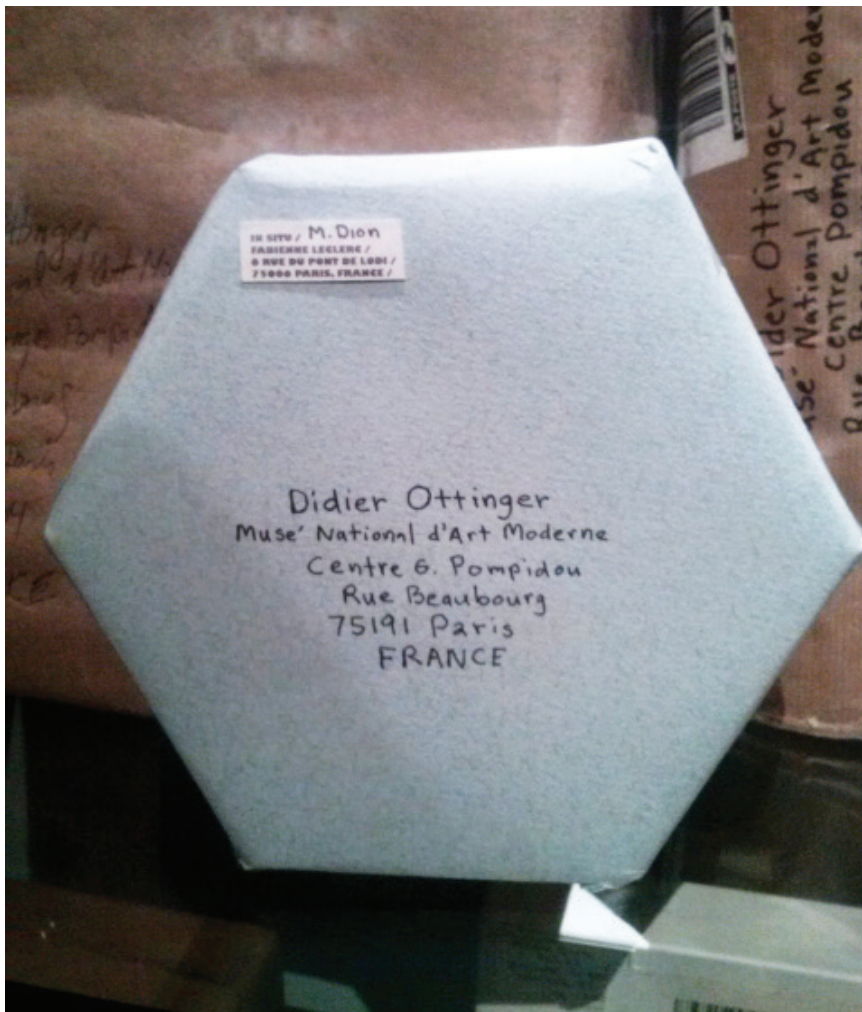 IN SITU / M. Dion
FABIENNE LECLERC /
6 RUE DU PONT DE LODI /
75006 PARIS, FRANCE /
Didier Ottinger
Muse' National d'Art Moderne
Centre G. Pompidou
Rue Beaubourg
75191 Paris
FRANCE
Ottinger
National d'Art Moder
Centre Pompidou